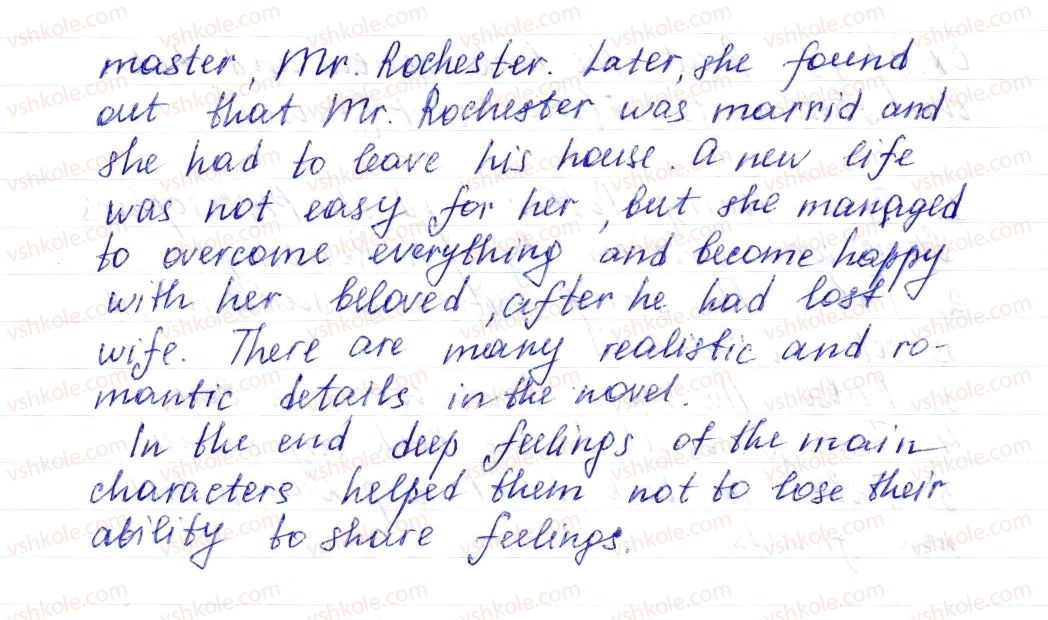 master, Mr. Rochester. Later, she found
out that Mr. Rochester was marrid and
she had to leave his house. A new life
was not easy for her, but she managed
to overcome everything and become happy
with her beloved, after he had lost
wife. There are many realistic and ro-
mantic details in the novel.
In the end deep feelings of the main
characters helped them not to lose their
ability to share feelings.
vshkole.com